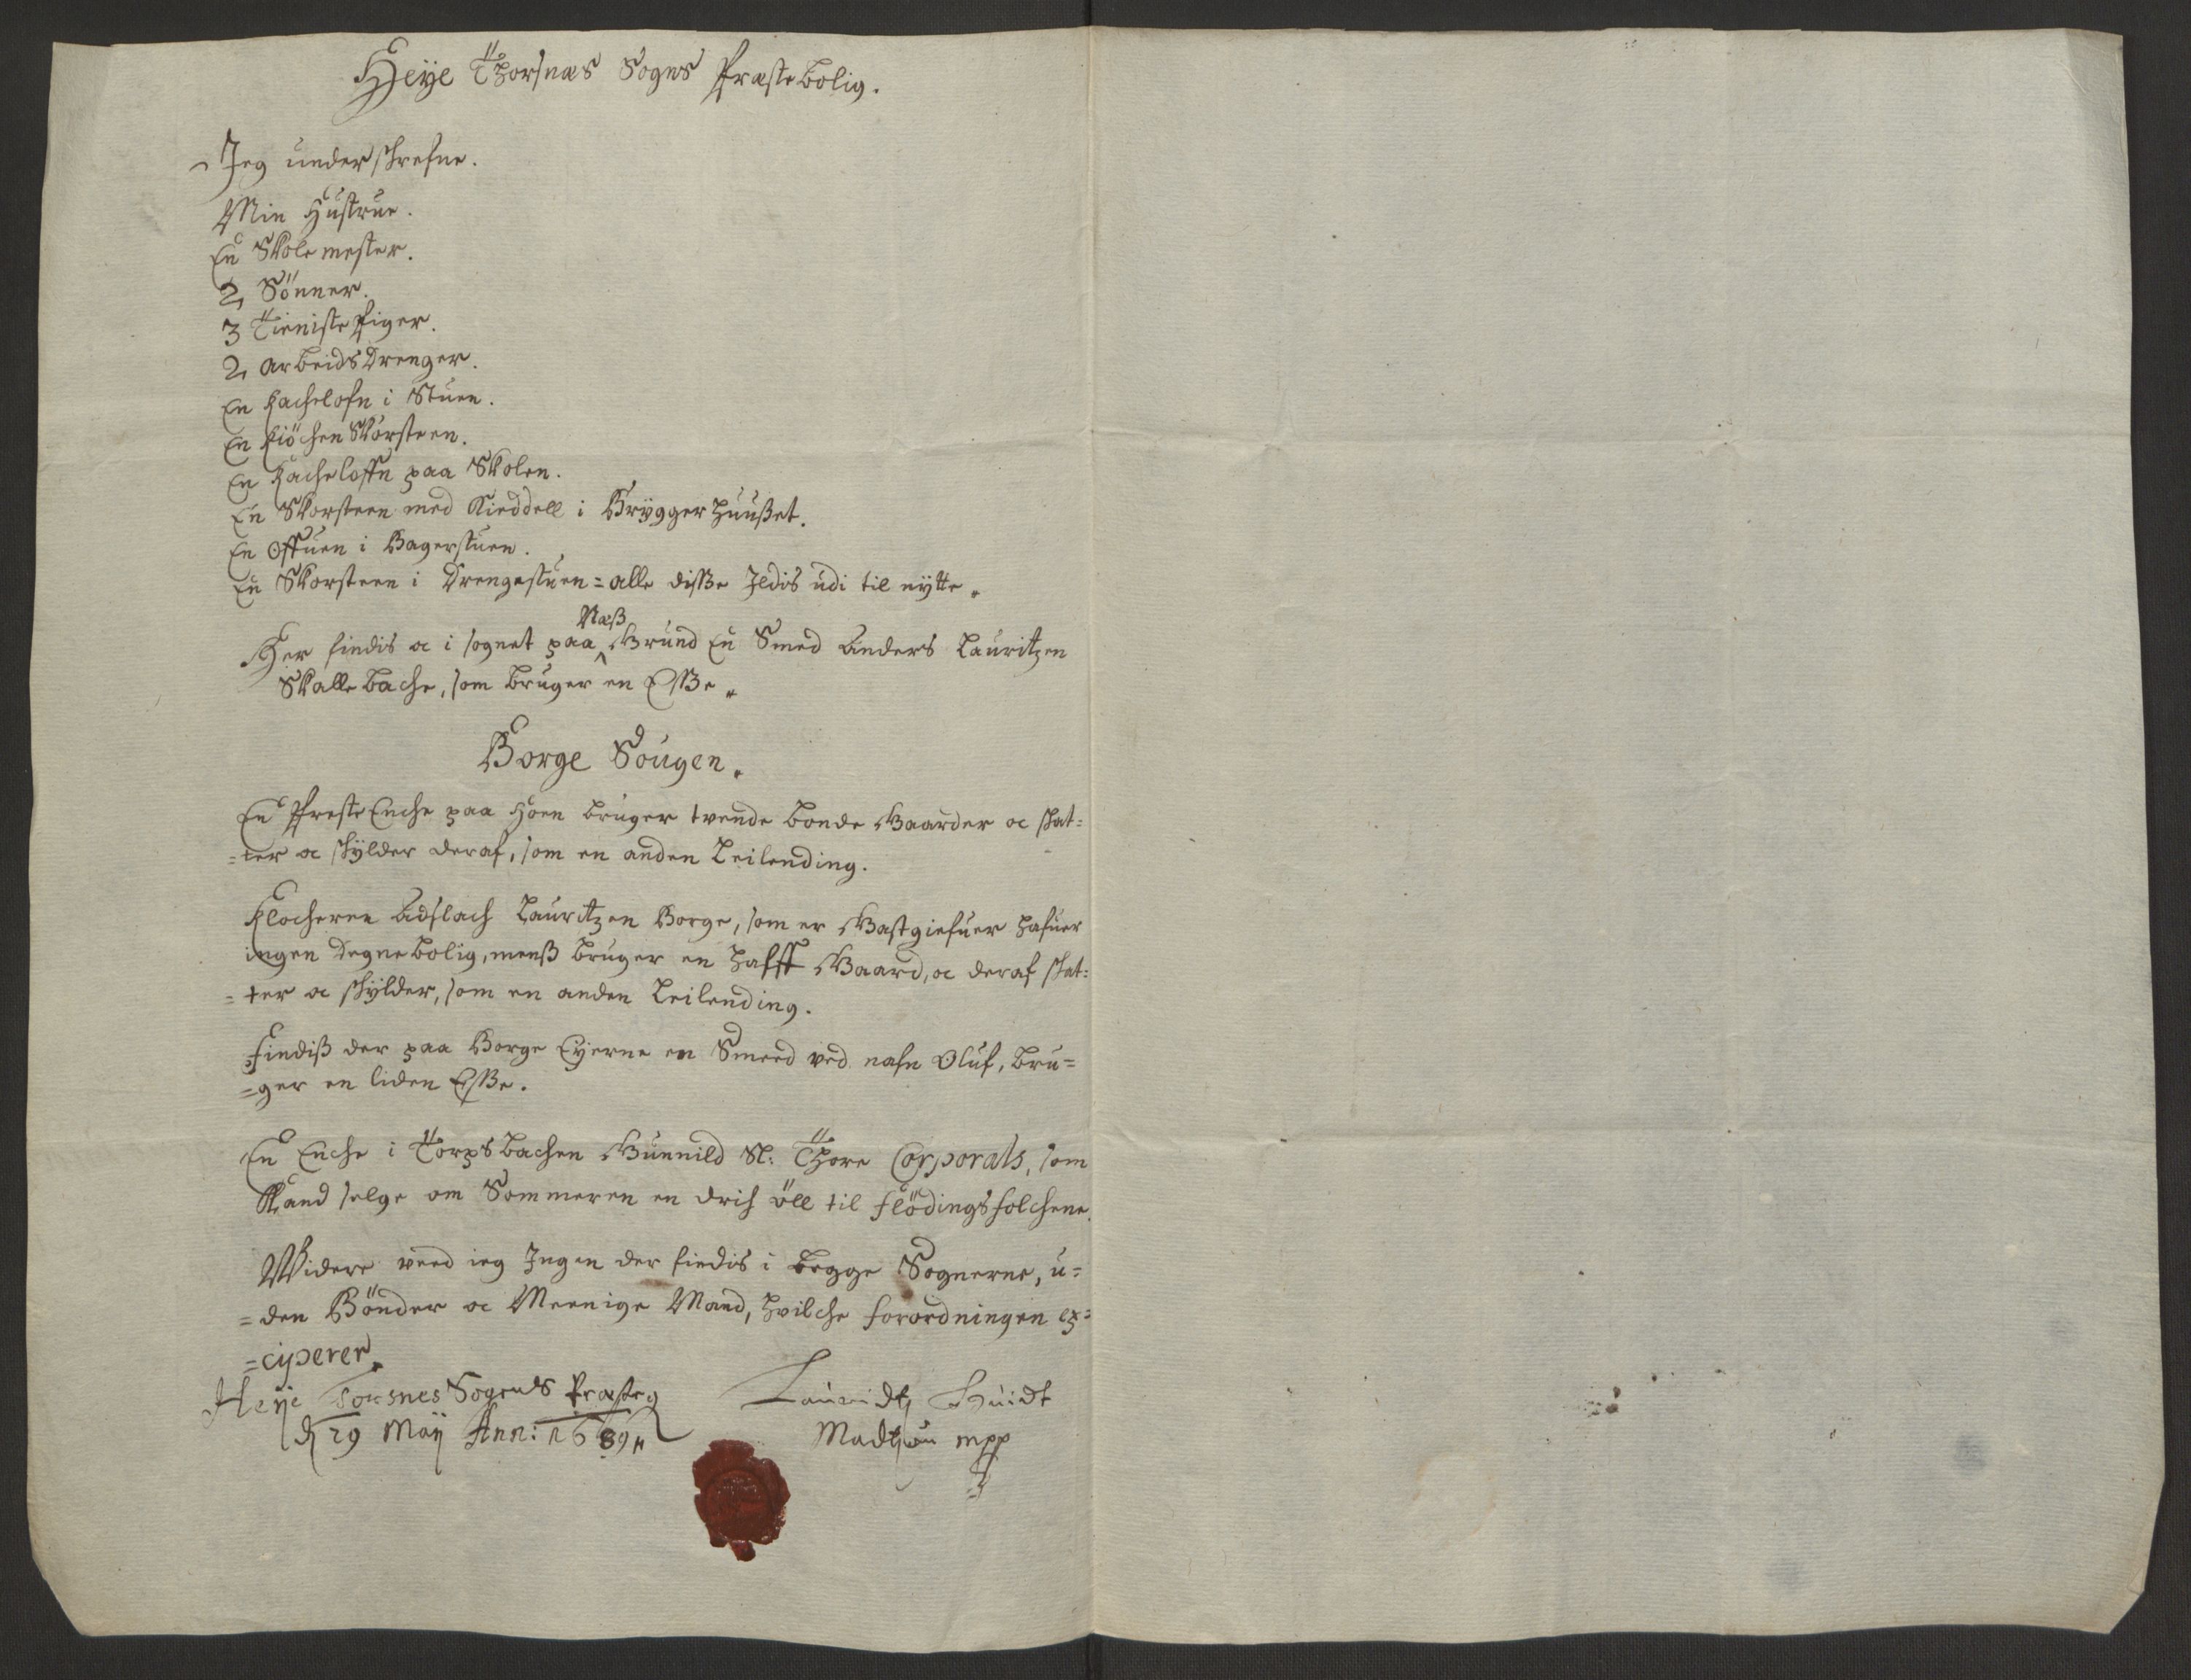 Heÿe Thorsnæs Sogns Præstebolig.
Jeg underschrefne.
Min Hustrue.
En Skolemester.
2 Sönner.
3 Tieniste piger.
2 arbeids Drenger.
En Kachelofn i Stuen.
En Kiöchen Skorsteen.
En Kacheloffn paa Skolen.
En Skorsteen med Kieddell i Brÿggerhuußet.
En Offuen i Bagerstuen.
En Skorsteen i Drengestuen = alle disse Ildis udi til nÿtte.
Næß
Her findis oc i sognet paa Grund En Smed Anders Lauritzen
Skallebache, som bruger en Esse.
Borge Sougen.
En Preste Enche paa Hoen bruger tvende bonde Gaarder oc skat=
=ter oc skÿlder deraf, som en anden Leilending.
Klocheren Adslach Lauritzen Borge, som er Gastgiefuer hafuer
ingen Degnebolig, menß bruger en halff Gaard, oc deraf skat=
=ter oc skÿlder, som en anden Leilending.
Findiß der paa Borge Eÿerne en Smeed ved nafn Oluf, bru=
=ger en liden Esse.
En Enche i Torpsbachen Gunnild Sl: Thore Corporals, som
skand selge om Sommeren en drich öll til flödingsfolchene.
Widere veed ieg Ingen der findis i begge Sognerne, u=
=den Bönder oc Meenige Mand, hvilche forordningen ex=
=ciperer.
Heÿe Torsnes Sogends Præsteg
d 29 Maÿ Ann: 1689
Lauridtz Huidt
Madtzøn mpp